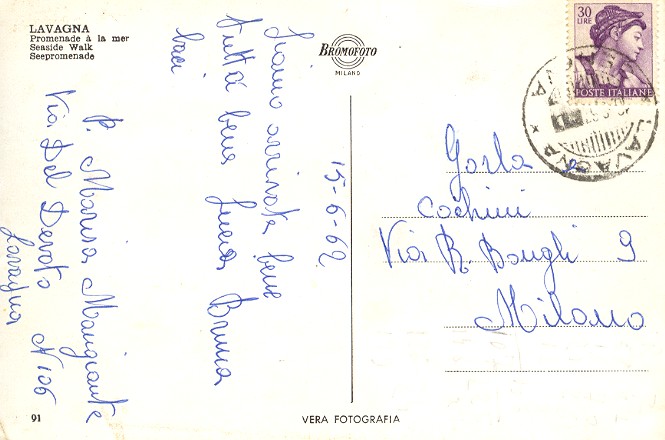 LAVAGNA
Promenade à la mer
Seaside Walk
Seepromenade
BROMOFOTO
MILANO
30
LIRE
POSTE ITALIANE
LAVAGNA
15-6-62
Siamo arrivate bene
tutta bene Lucia Bruna
baci
P. Marisa Mangiante
Via Del Devoto N 106
Lavagna
Gorla
Cochini
Via R. Bonghi 9
Milano
91
VERA FOTOGRAFIA